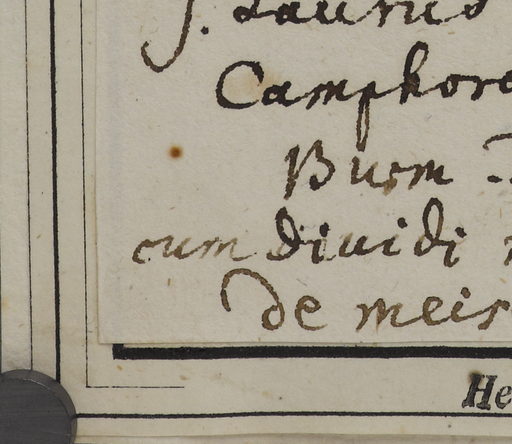 J. Laurus
Camphore
Burm
cum dividi
de meis
He